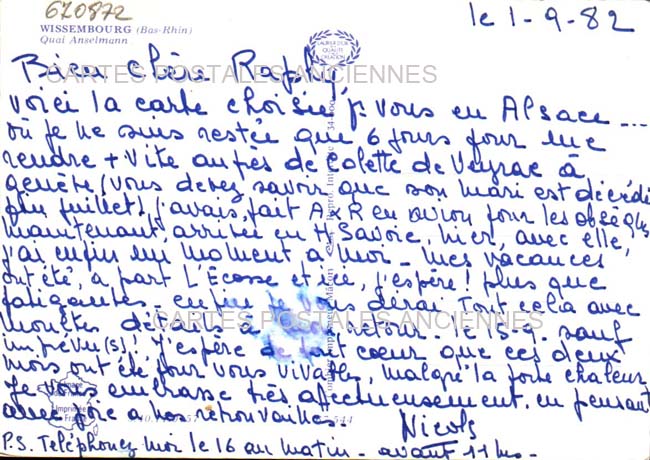 670872
le 1-9-82
WISSEMBOURG (Bas-Rhin)
Quai Anselmann
Bien chère Raphy,
CARTES POSTALES ANCIENNES
voici la carte choisie pr vous en Alsace ....
où je ne suis restée que 6 jours pour me
rendre + vite auprès de Colette de Veyrac à
genève (vous devez savoir que son mari est décédé
fin juillet) j'avais fait A×R en avion pour les obsèques
maintenant, arrivée en H Savoie, hier, avec elle,
j'ai enfin un moment à moi - mes vacances
ont été, à part L'Écosse et ici, j'espère! plus que
fatigantes - enfin je vous dirai tout cela avec
moultes détails à mon retour - le 15-9. sauf
CARTES POSTALES ANCIENNES
imprévu(s)! J'espère de tout cœur que ces deux
mois ont été pour vous vivables, malgré la forte chaleur
Je vous embrasse très affectueusement, en pensant
avec joie à nos retrouvailles -
Nicole
P.S. Téléphonez moi le 16 au matin - avant 11 hs -